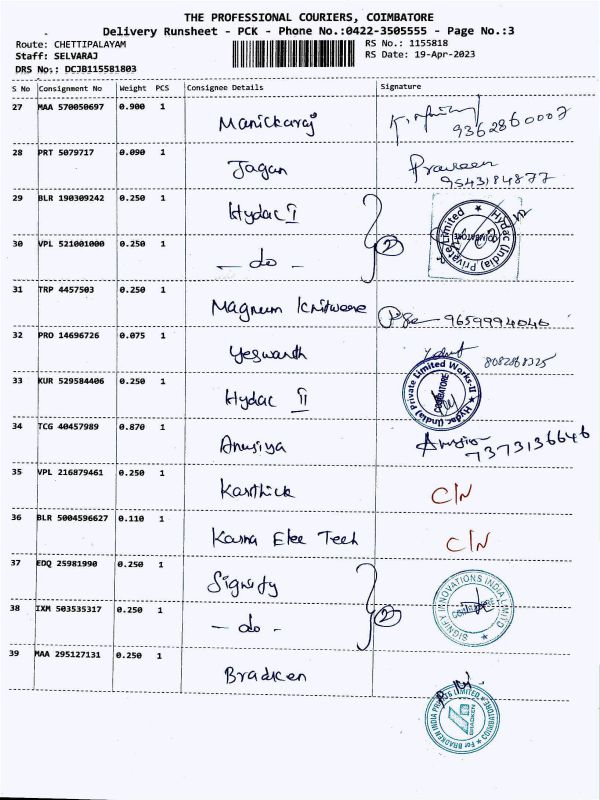 THE PROFESSIONAL COURIERS, COIMBATORE
Delivery Runsheet - PCK - Phone No.:0422-3505555 - Page No.:3
Route: CHETTIPALAYAM RS No.: 1155818
Staff: SELVARAJ RS Date: 19-Apr-2023
DRS No.: DCJB115581803
S No Consignment No Weight PCS Consignee Details Signature
27 MAA 570050697 0.900 1 Manickaraj 9362860007
28 PRT 5079717 0.090 1 Jagan Praveen
9543184877
29 BLR 190309242 0.250 1 Hydac I
Hydac (India) Private Limited
COIMBATORE
30 VPL 521001000 0.250 1 - do - 2
31 TRP 4457503 0.250 1 Magnum Knitweare 9659994046
32 PRO 14696726 0.075 1 Yeswanth 8082868325
33 KUR 529584406 0.250 1 Hydac II
Hydac (India) Private Limited Works-II
COIMBATORE
34 TCG 40457989 0.870 1 Anusiya Anusiya
7373136646
35 VPL 216879461 0.250 1 Karthick C/N
36 BLR 5004596627 0.110 1 Karna Elec Tech C/N
37 EDQ 25981990 0.250 1 Signify
SIGNIFY INNOVATIONS INDIA LIMITED
COIMBATORE
38 IXM 503535317 0.250 1 - do - 2
39 MAA 295127131 0.250 1 Bradken
For BRADKEN INDIA PRIVATE LIMITED
BRADKEN
COIMBATORE